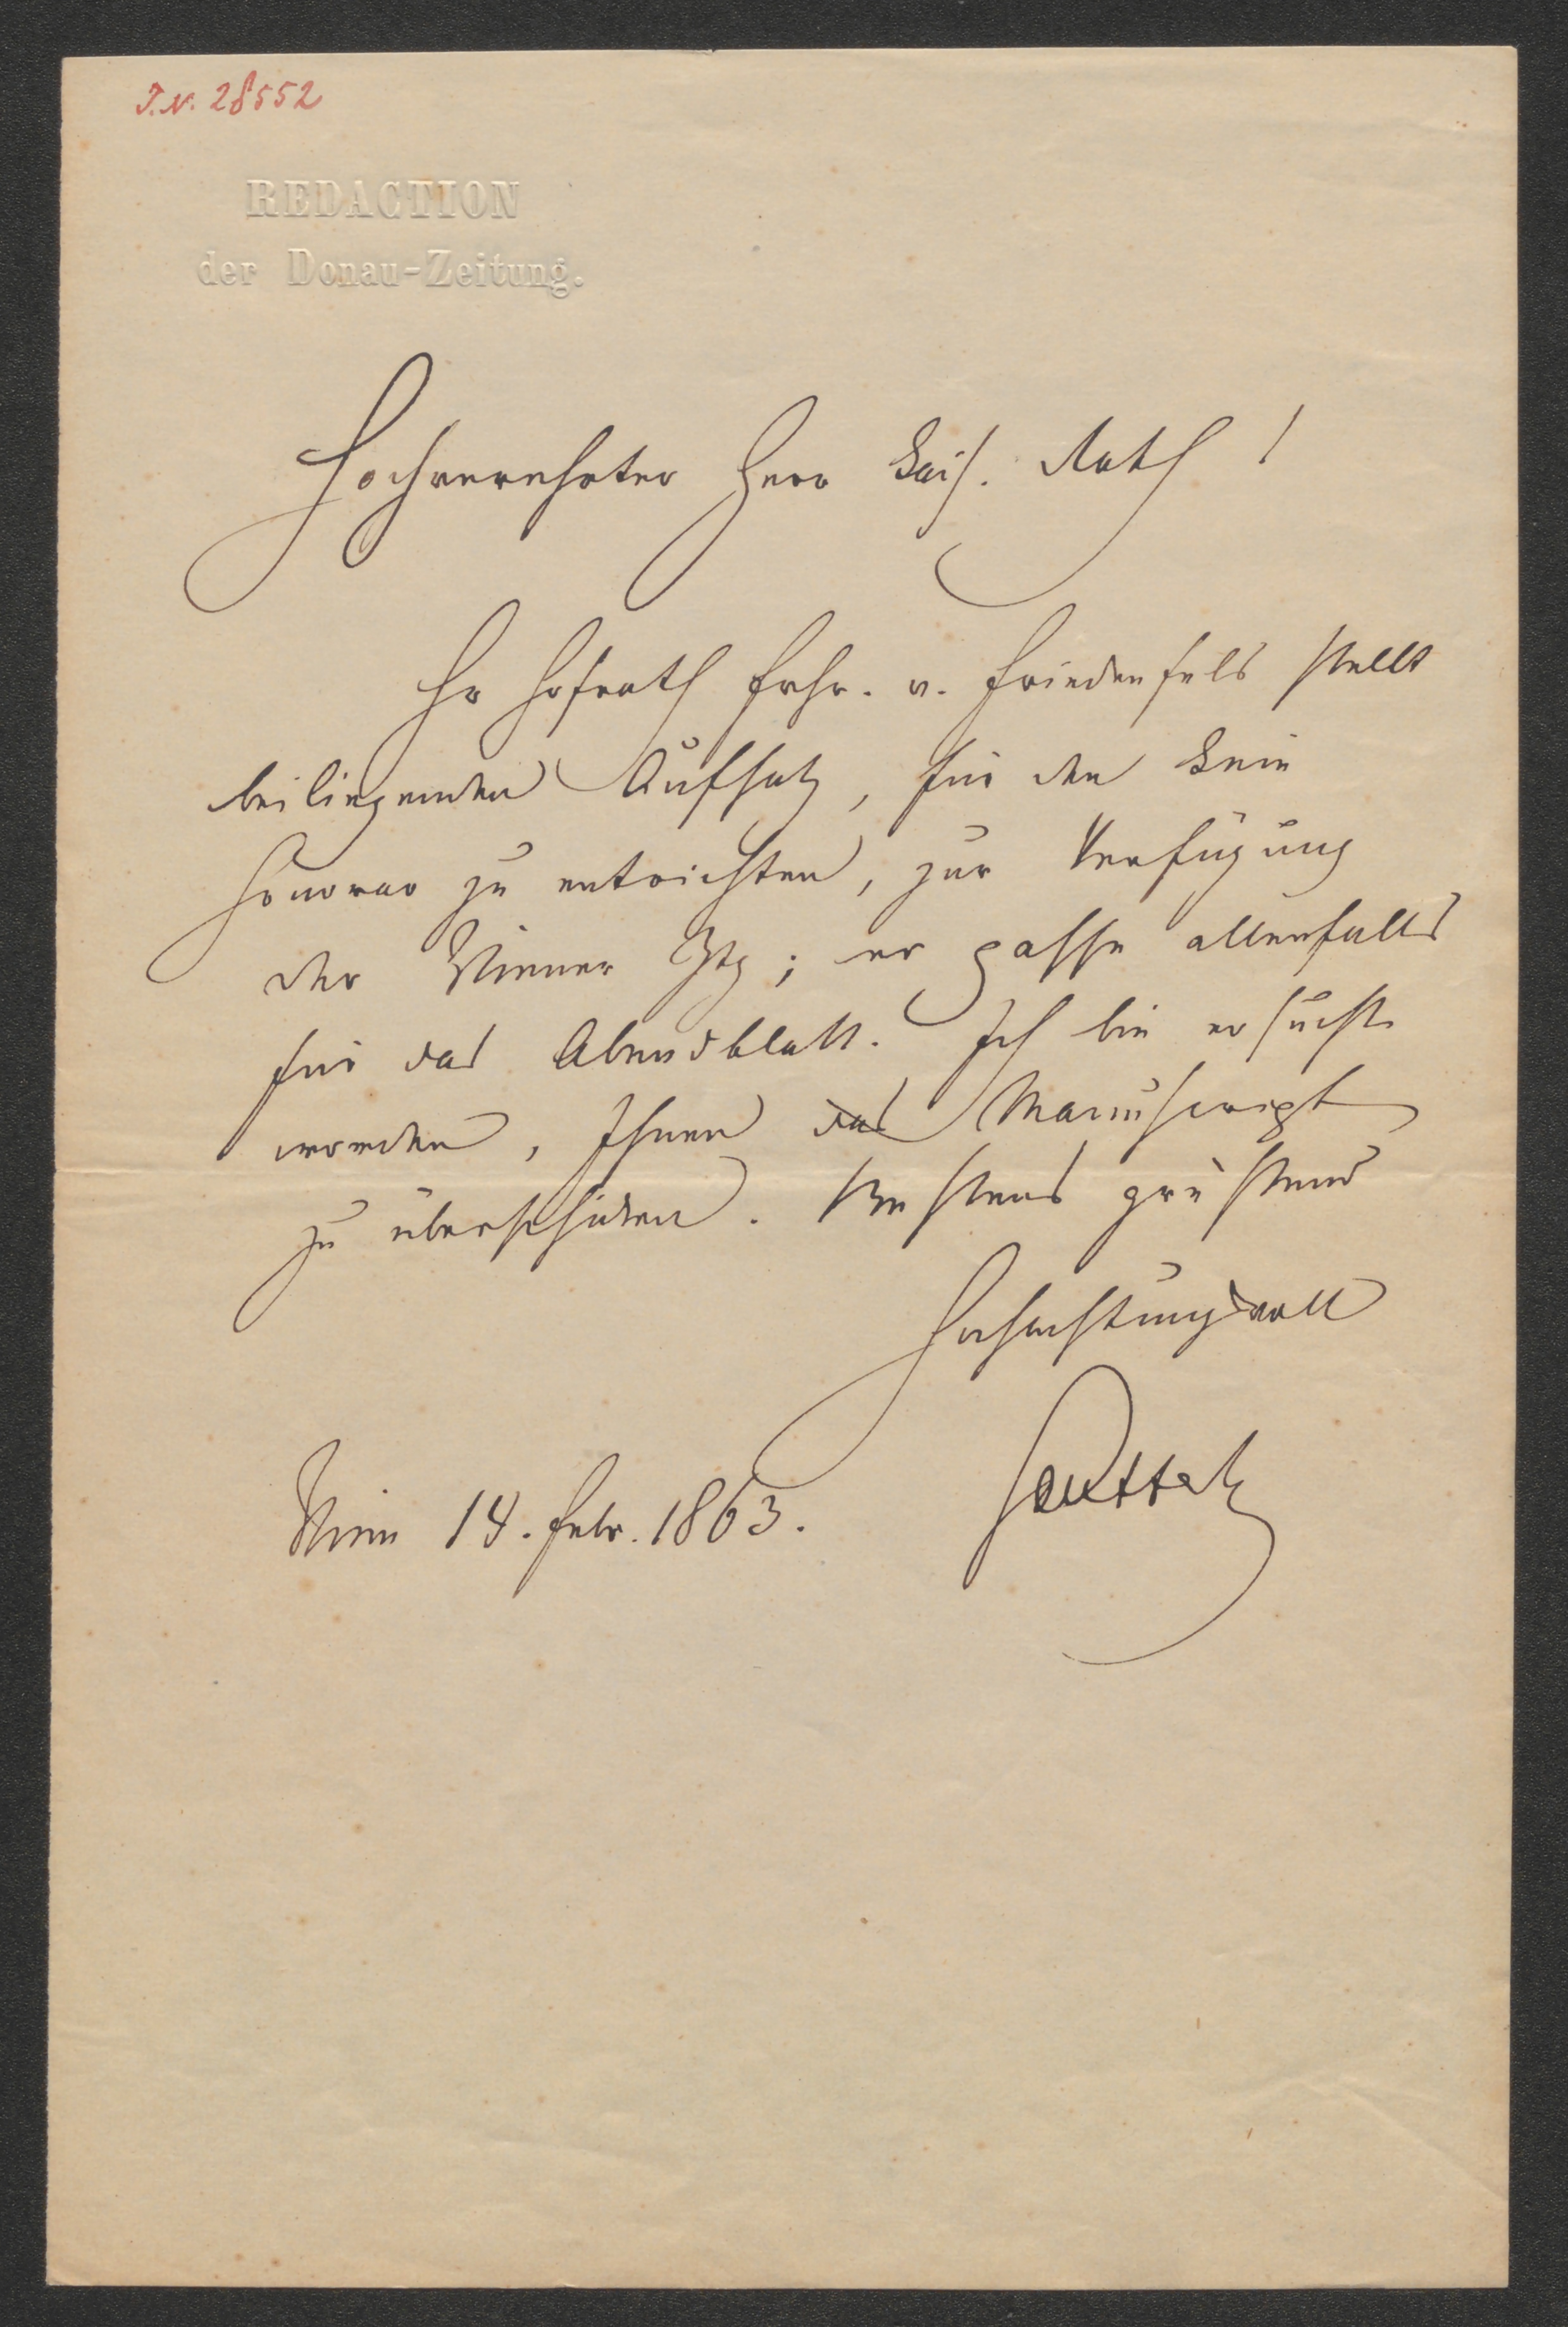 I.N. 28552
REDACTION
der Donau-Zeitung.
Hochverehrter Herr kais. Rath!
Hr Hofrath Frhr. v. Friedenfels stellt
beiliegenden Aufsatz, für den kein
Honorar zu entrichten, zur Verfügung
der Wiener Ztg; er passe allenfalls
für das Abendblatt. Ich bin ersucht
worden, Ihnen das Manuscript
zu überschicken. Bestens grüßend
Hochachtungsvoll
Wien 14. Febr. 1863.